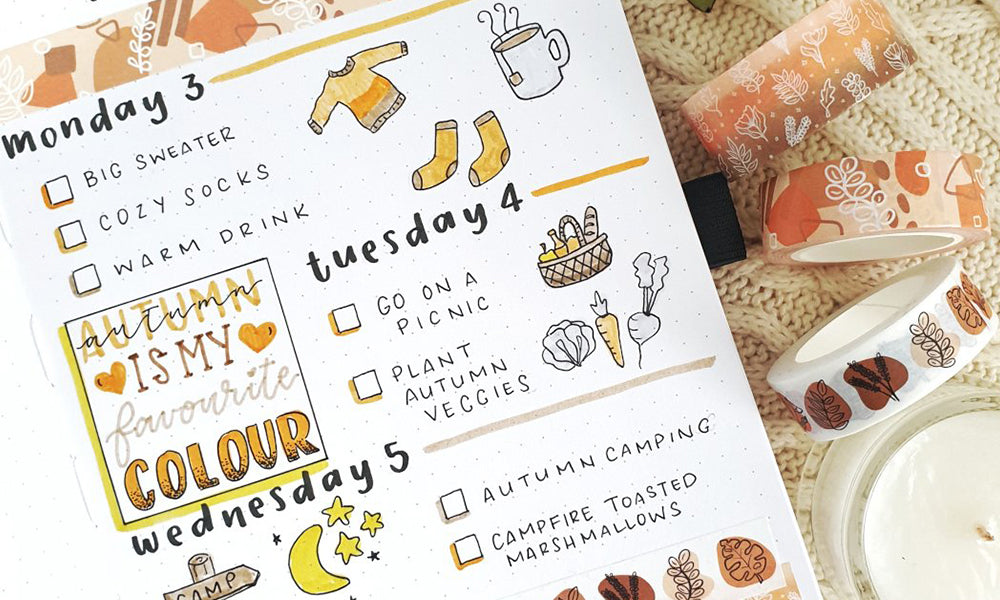 monday 3
BIG SWEATER
COZY SOCKS
WARM DRINK
AUTUMN
autumn
IS MY
favourite
COLOUR
tuesday 4
GO ON A
PICNIC
PLANT
AUTUMN
VEGGIES
wednesday 5
AUTUMN CAMPING
CAMPFIRE TOASTED
MARSHMALLOWS
CAMP